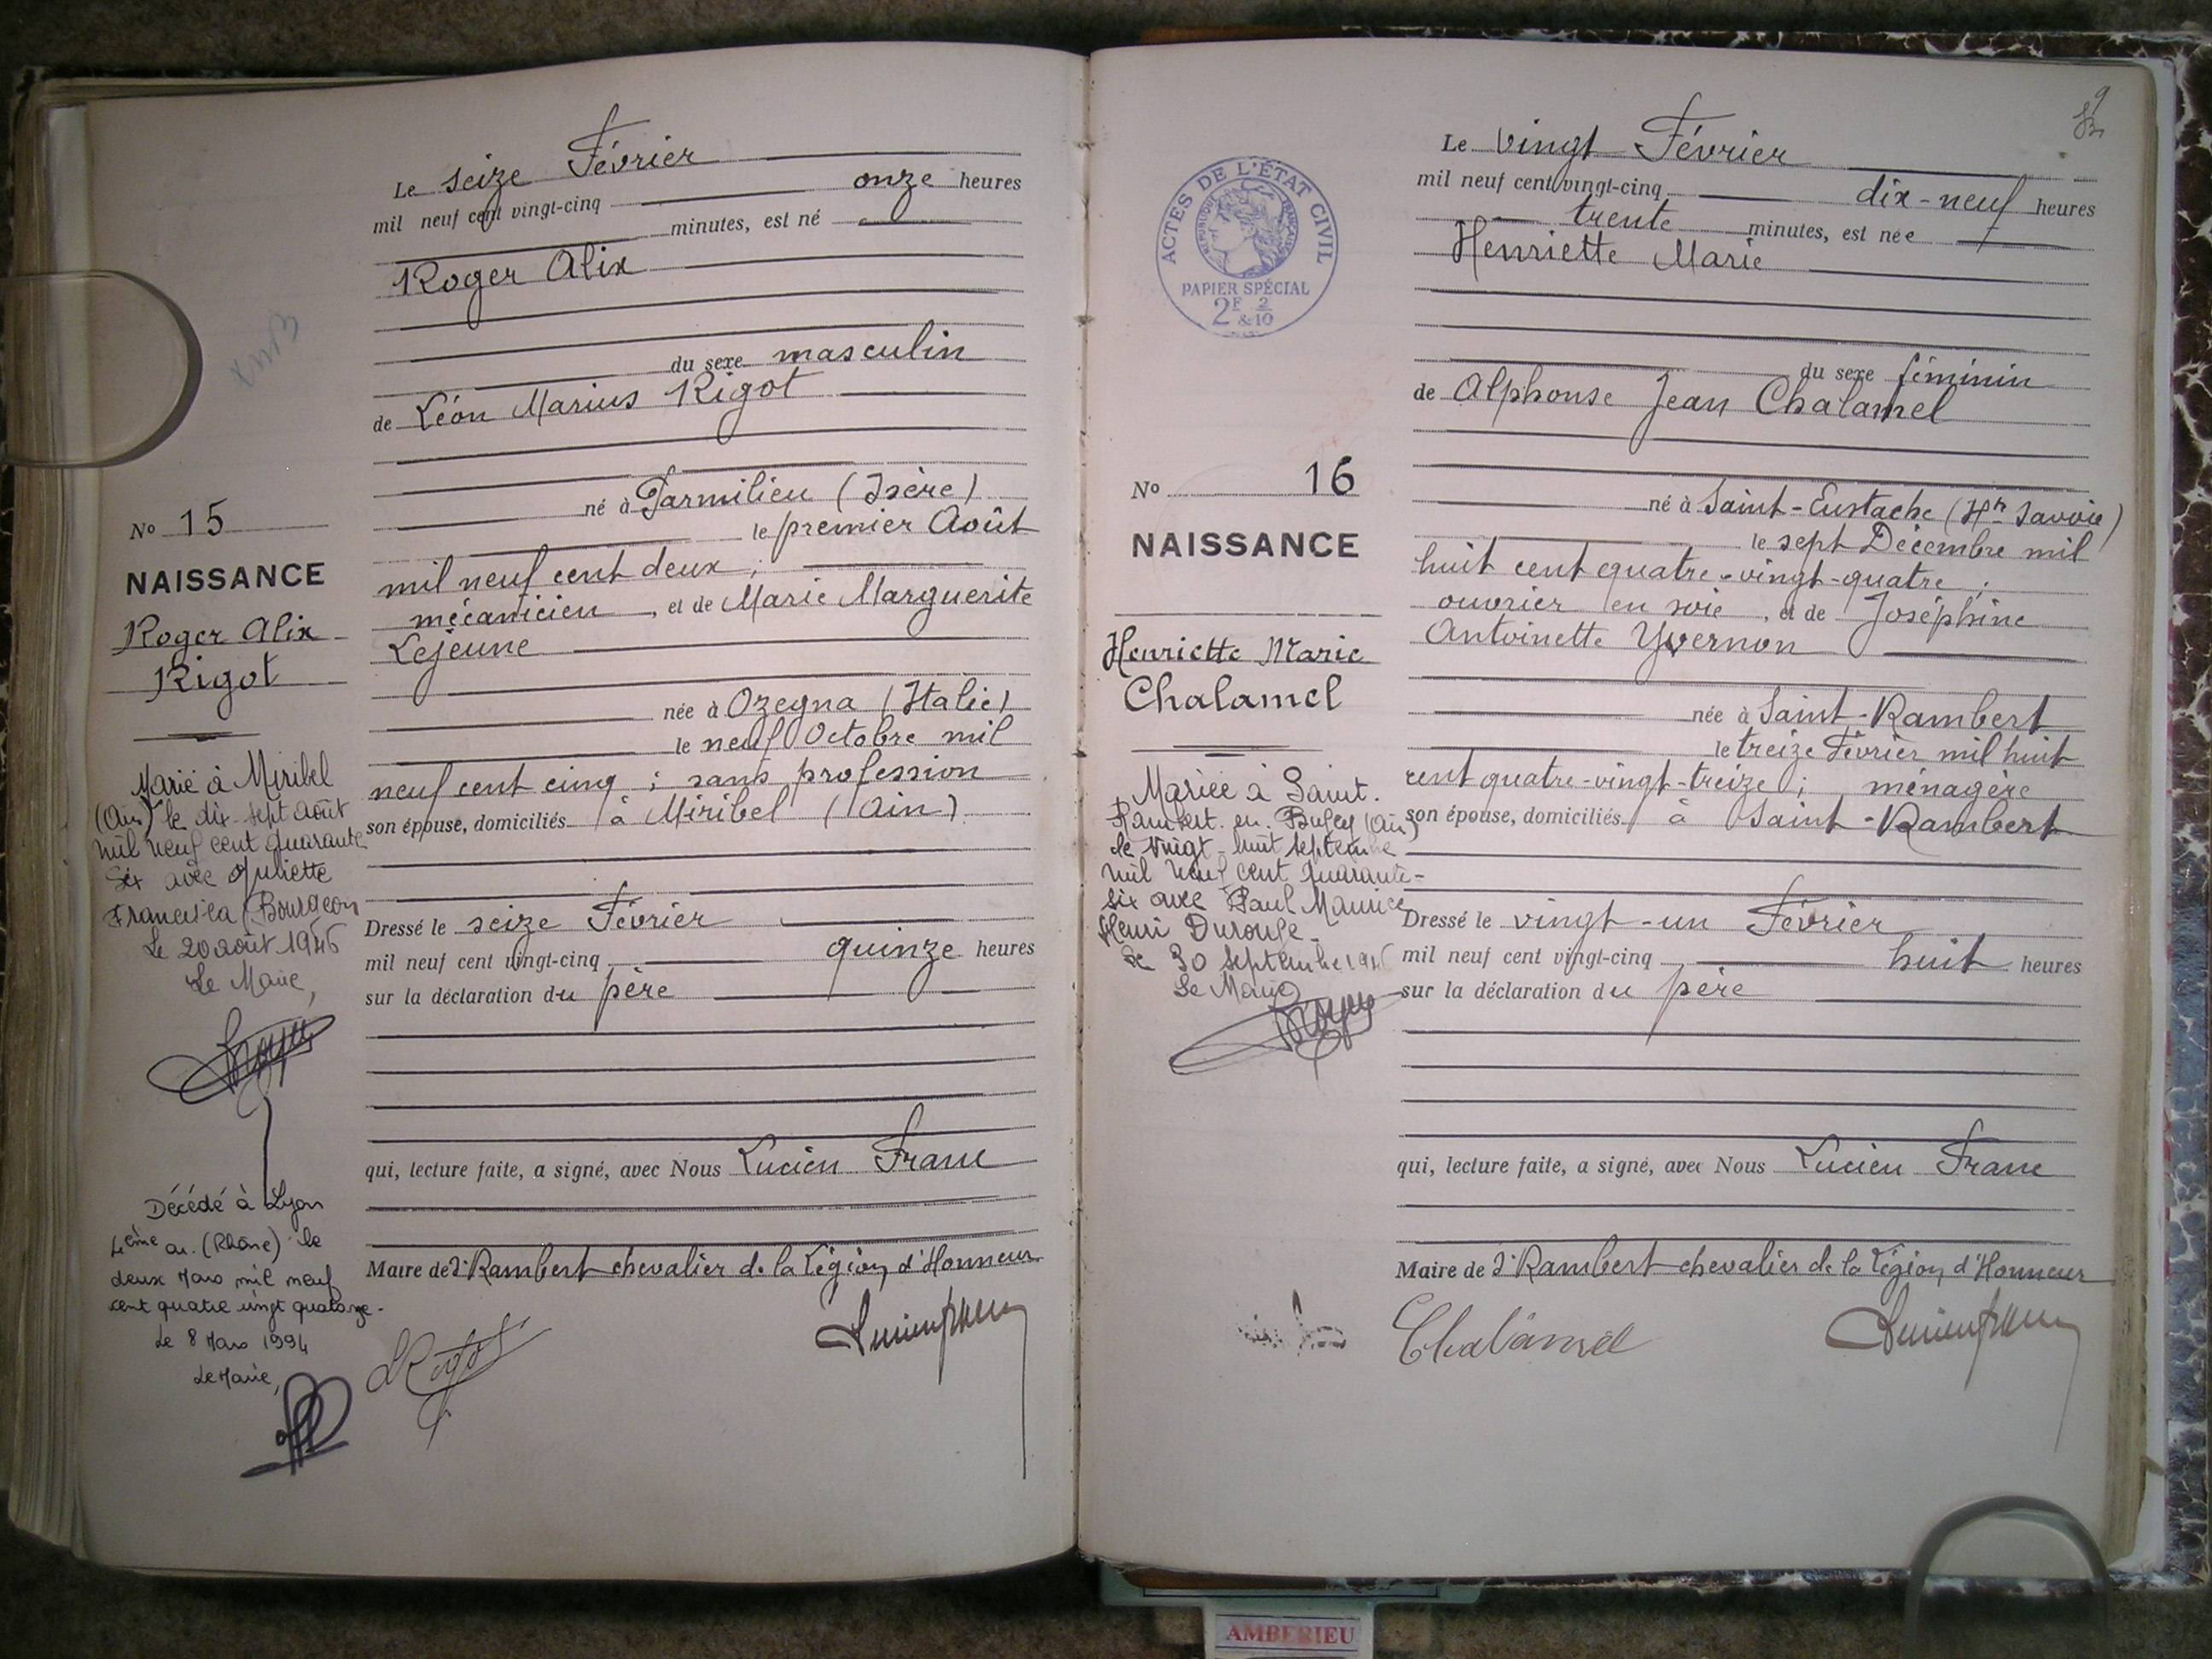 Le seize Février
mil neuf cent vingt-cinq onze heures
minutes, est né
Roger Alix
du sexe masculin
de Léon Marius Rigot
né à Parmilieu (Isère)
le premier Août
mil neuf cent deux ;
mécanicien, et de Marie Marguerite
Lejeune
née à Ozegna (Italie)
le neuf Octobre mil
neuf cent cinq ; sans profession
son épouse, domiciliés à Miribel (Ain)
Dressé le seize Février
mil neuf cent vingt-cinq quinze heures
sur la déclaration du père
qui, lecture faite, a signé, avec Nous Lucien Franc
Maire de St Rambert chevalier de la Légion d'Honneur
No 15
NAISSANCE
Roger Alix
Rigot
Marié à Miribel
(Ain) le dix-sept août
mil neuf cent quarante
six avec Juliette
Francisca Bourgeon
Le 20 août 1946
Le Maire,
Décédé à Lyon
4ème ar. (Rhône) le
deux Mars mil neuf
cent quatre vingt quatorze.
Le 8 Mars 1994
Le Maire,
9
Le vingt Février
mil neuf cent vingt-cinq dix-neuf heures
trente minutes, est née
Henriette Marie
du sexe féminin
de Alphonse Jean Chalamel
né à Saint-Eustache (Hte Savoie)
le sept Décembre mil
huit cent quatre-vingt-quatre ;
ouvrier en soie, et de Joséphine
Antoinette Yvernon
née à Saint-Rambert
le treize Février mil huit
cent quatre-vingt-treize ; ménagère
son épouse, domiciliés à Saint-Rambert
Dressé le vingt-un Février
mil neuf cent vingt-cinq huit heures
sur la déclaration du père
qui, lecture faite, a signé, avec Nous Lucien Franc
Maire de St Rambert chevalier de la Légion d'Honneur
Chalamel
ACTES DE L'ÉTAT CIVIL
RÉPUBLIQUE FRANÇAISE
PAPIER SPÉCIAL
2F & 2/10
No 16
NAISSANCE
Henriette Marie
Chalamel
Mariée à Saint-
Rambert-en-Bugey (Ain)
le vingt-huit septembre
mil neuf cent quarante-
six avec Paul Maurice
Henri Durouge
Le 30 septembre 1946
Le Maire
AMBERIEU